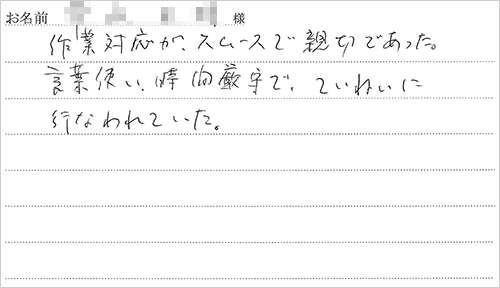 お名前 様
作業対応が、スムースで親切であった。
言葉使い、時間厳守で、ていねいに
行なわれていた。